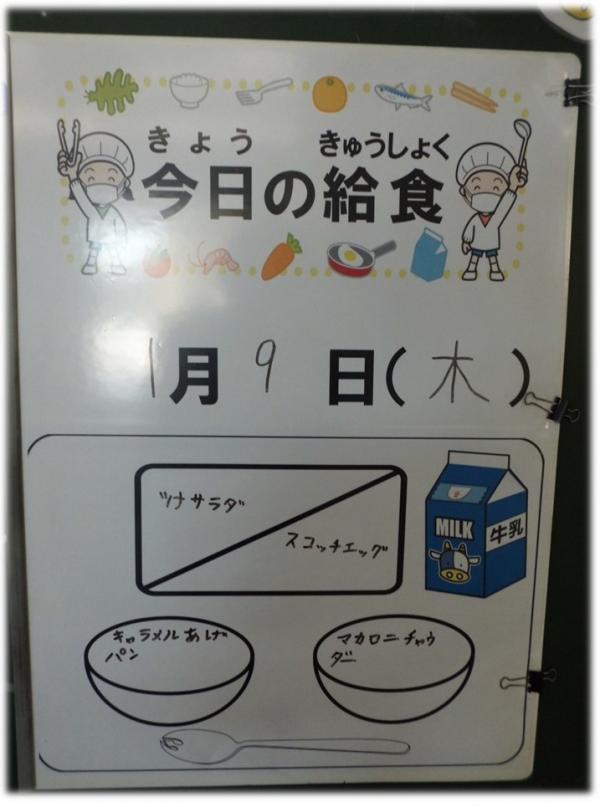 きょう きゅうしょく
今日の給食
1月9日(木)
ツナサラダ
スコッチエッグ
MILK
牛乳
キャラメルあげ
パン
マカロニチャウ
ダー